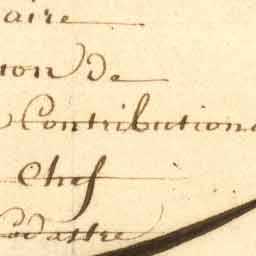 aire
ion de
Contributions
Chef
Cadastre